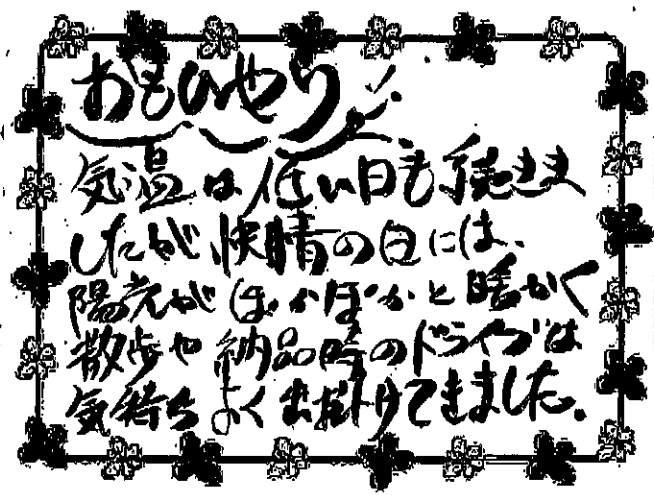 おもひやり
気温は低い日も続きま
したが快晴の日には、
陽光がぽかぽかと暖かく
散歩や納品時のドライブは
気持ちよくお出掛けできました。